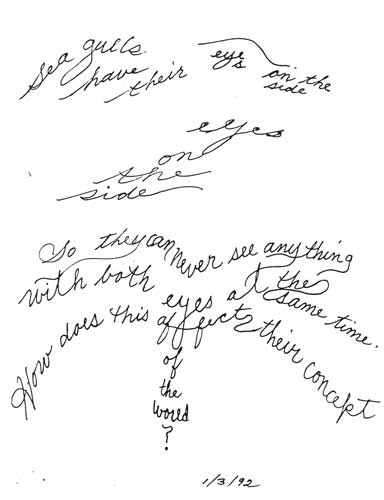 Sea gulls have their eyes on the side
eyes
on
the
side
So they can never see anything
with both eyes at the same time.
How does this affect their concept
of
the
world
?
1/3/92